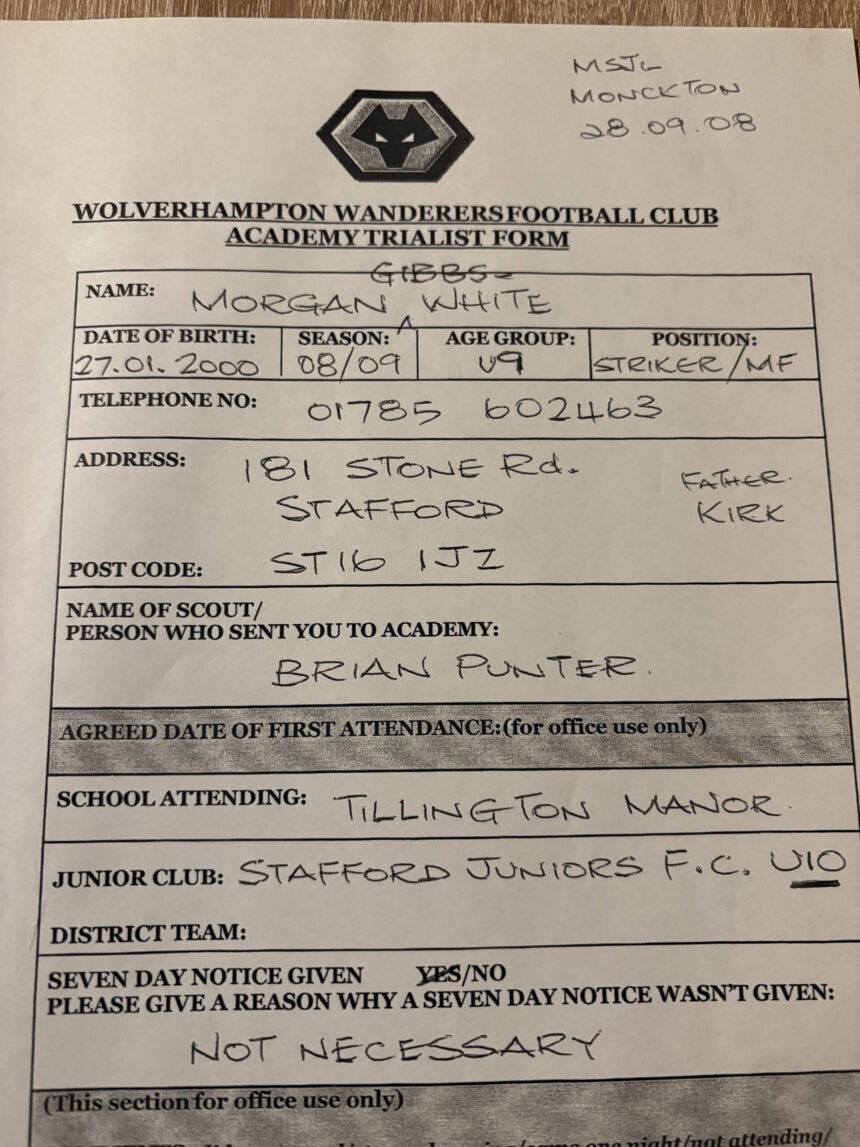 MSJL
MONCKTON
28.09.08
WOLVERHAMPTON WANDERERS FOOTBALL CLUB
ACADEMY TRIALIST FORM
GIBBS-
NAME: MORGAN WHITE
DATE OF BIRTH: SEASON: AGE GROUP: POSITION:
27.01.2000 08/09 U9 STRIKER/MF
TELEPHONE NO: 01785 602463
ADDRESS: 181 STONE Rd. FATHER.
STAFFORD KIRK
POST CODE: ST16 1JZ
NAME OF SCOUT/
PERSON WHO SENT YOU TO ACADEMY:
BRIAN PUNTER.
AGREED DATE OF FIRST ATTENDANCE:(for office use only)
SCHOOL ATTENDING: TILLINGTON MANOR.
JUNIOR CLUB: STAFFORD JUNIORS F.C. U10
DISTRICT TEAM:
SEVEN DAY NOTICE GIVEN YES/NO
PLEASE GIVE A REASON WHY A SEVEN DAY NOTICE WASN'T GIVEN:
NOT NECESSARY
(This section for office use only)
one night/not attending/